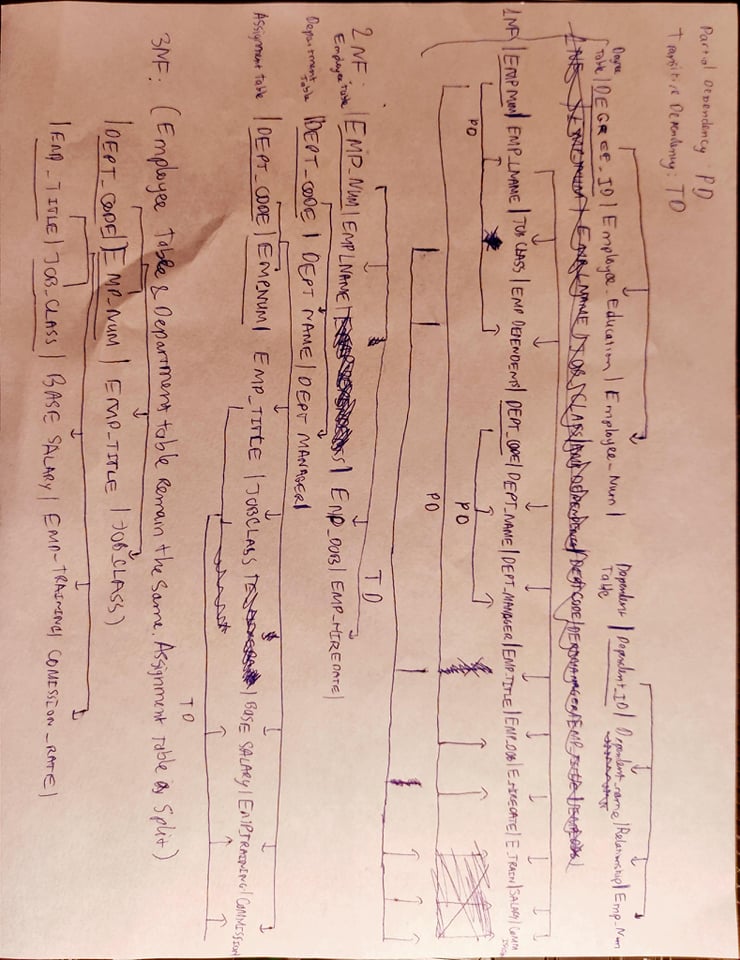 Partial Dependency PD
Transitive Dependency. TD
Degree Table | DEGREE_ID | Employee_Education | Employee_Num |
Dependent Table | Dependent_ID | Dependent_name | Relationship | Emp_Num
1NF | EMPNUM | EMP_LNAME | JOB CLASS | EMP DEPENDENTS | DEPT_CODE | DEPT_NAME | DEPT_MANAGER | EMP_TITLE | EMP_DOB | E_HIREDATE | E TRAIN | SALARY |
PD
PD
PD
2NF:
Employee Table | EMP_NUM | EMP_LNAME | EMP_DOB | EMP_HIREDATE |
Department Table | DEPT_CODE | DEPT NAME | DEPT MANAGER |
TD
Assignment Table | DEPT_CODE | EMPNUM | EMP_TITLE | JOBCLASS | BASE SALARY | EMPTRAINING | COMMISSION
TD
3NF: (Employee Table & Department table remain the same. Assignment table is split)
| DEPT_CODE | EMP_NUM | EMP_TITLE | JOB_CLASS )
| EMP_TITLE | JOB_CLASS | BASE SALARY | EMP-TRAINING | COMISSION_RATE |